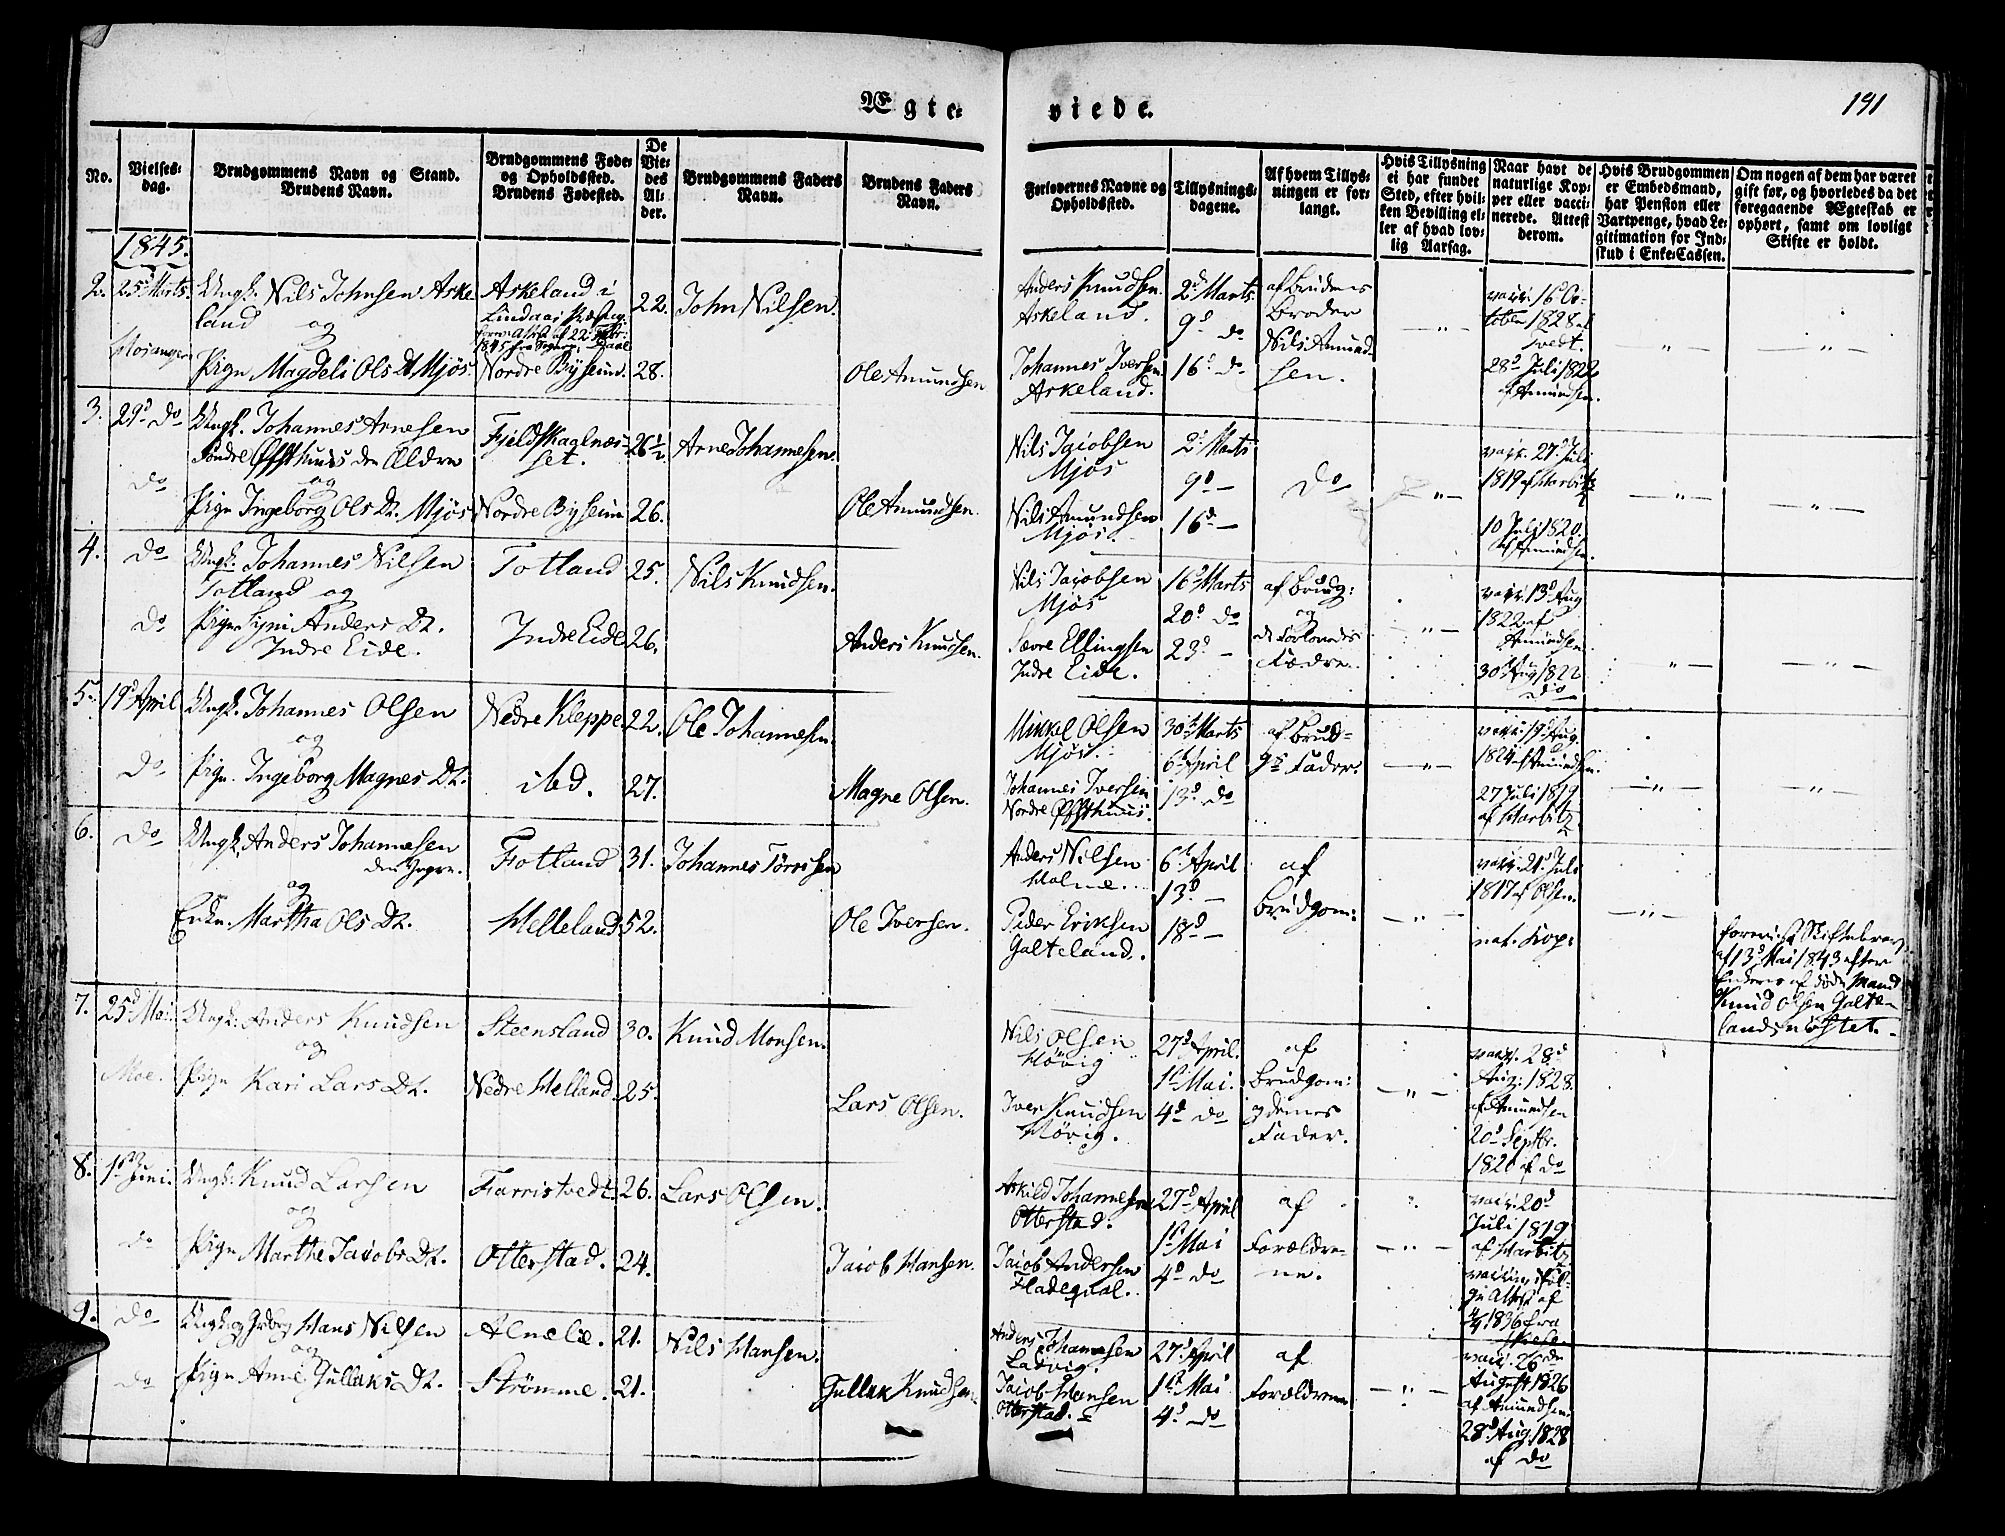 Ægte-
viede.
191
No.
Vielses-
dag.
Brudgommens Navn og Stand.
Brudens Navn.
Brudgommens Føde-
og Opholdssted.
Brudens Fødested.
De
Vie-
des
Al-
der.
Brudgommens Faders
Navn.
Brudens Faders
Navn.
Forlovernes Navne og
Opholdssted.
Tillysnings-
dagene.
Af hvem Tillys-
ningen er for-
langt.
Hvis Tillysning
ei har fundet
Sted, efter hvil-
ken Bevilling el-
ler af hvad lov-
lig Aarsag.
Naar havt de
naturlige Kop-
per eller vacci-
nerede. Attest
derom.
Hvis Brudgommen
er Embedsmand,
har Pension eller
Vartpenge, hvad Le-
gitimation for Ind-
skud i Enke-Cassen.
Om nogen af dem har været
gift før, og hvorledes da det
foregaaende Ægteskab er
ophørt, samt om lovligt
Skifte er holdt.
1845.
2.
25d Marts
Mosanger
Ungk. Nils Johnsen Aske
land og
Pign Magdeli Ols Dt Mjøs
Askeland i
Lindaas Præsteg.
Nordre Byseim.
22.
28.
John Nilsen.
Ole Amundsen
Anders Knudsen
Askeland.
Johannes Iversen
Askeland.
2d Marts
9d do
16d do
af Brudens
Broder
Nils Amund-
sen.
— " —
vacc. 16d Oc-
tober 1828 af
28d Juli 1822
af Amundsen.
— " —
— " —
3.
29d do
do
Ungk. Johannes Arnesen
Søndre Øfsthuus den Ældre
og
Pign Ingeborg Ols Dt. Mjøs
Fjeldskaalnæs-
set.
Nordre Byseim
26½
26.
Arne Johannesen.
Ole Amundsen.
Nils Jacobsen
Mjøs
Nils Amundsen
Mjøs.
2d Marts
9d —
16d —
do
— " —
vacc. 27d Juli
1819 af Harbitz
10 Juli 1820
af Amundsen.
— " —
— " —
4.
do
do
Ungk. Johannes Nilsen
Totland og
Pign Syni Anders Dt.
Indre Eide.
Totland
Indre Eide
25.
26.
Nils Knudsen.
Anders Knudsen.
Nils Jacobsen
Mjøs
Sævre Ellingsen
Indre Eide.
16d Marts
20d do
23d —
af Brudg:
og
de Forlovedes
Fædre.
— " —
vacc. 13d Aug
1822 af
Amundsen.
30d Aug 1822
do
— " —
— " —
5.
19d April
do
Ungk. Johannes Olsen
og
Pign. Ingeborg Magnes Dt.
Nedre Kleppe
ibid.
22.
27.
Ole Johannesen.
Magne Olsen.
Mikkel Olsen
Mjøs.
Johannes Iversen
Nordre Øfsthuus.
30te Marts
6te April
13d do
af Brud-
gs Fader.
— " —
vacc. 19d Aug.
1824 af Amundsen.
27 Juli 1819
af Harbitz
— " —
— " —
6.
do
Ungk. Anders Johannesen
den Yngre.
og
Enken Martha Ols Dt.
Fotland
Helleland
31.
52.
Johannes Torresen
Ole Iversen.
Anders Nilsen
Holme.
Peder Eriksen
Galteland.
6te April
13d —
18d —
af
Brudgom:
— " —
vacc. 21d Juli
1817 af Olsen.
nat. Kop:
— " —
forevist Skiftebrev
af 13d Mai 1843 efter
Enkens afdøde Mand
Knud Olsen Galte-
landsnøstet.
7.
25d Mai
Moe.
Ungk: Anders Knudsen
og
Pign Kari Lars Dt.
Steensland
Nedre Helland
30.
25.
Knud Monsen.
Lars Olsen.
Nils Olsen
Høvig
Iver Knudsen
Høvig.
27d April.
1ste Mai.
4d do
af
Brudgom:
gdennes
Fader.
— " —
vacc. 28d
Aug: 1828.
af Amundsen
20d Septbr.
1820 af do
8.
1ste Juni
do
Ungk: Knud Larsen
og
Pign Marthe Jacobs Dt.
Farristvedt
Otterstad.
26.
24.
Lars Olsen.
Jacob Hansen.
Askild Johannesen
Otterstad.
Jacob Andersen
Fladeqval.
27d April
1ste Mai
4d do
af
Forældre-
ne.
— " —
vacc. 20d
Juli 1819
af Harbitz
vaccin: iføl-
ge Attest af
4/4 1836 fra
9.
do
do
Ungk: og Hans Nilsen
og
Pign Anne Tullaks Dt.
Alnelie.
Strømme.
21.
21.
Nils Hansen.
Tullak Knudsen
Anders Johannesen
Ladvig.
Jacob Hansen
Otterstad.
27d April
1ste Mai
4d do
af
Forældrene
— " —
vacc. 26de
August 1826
af Amundsen
28d Aug 1828
af do